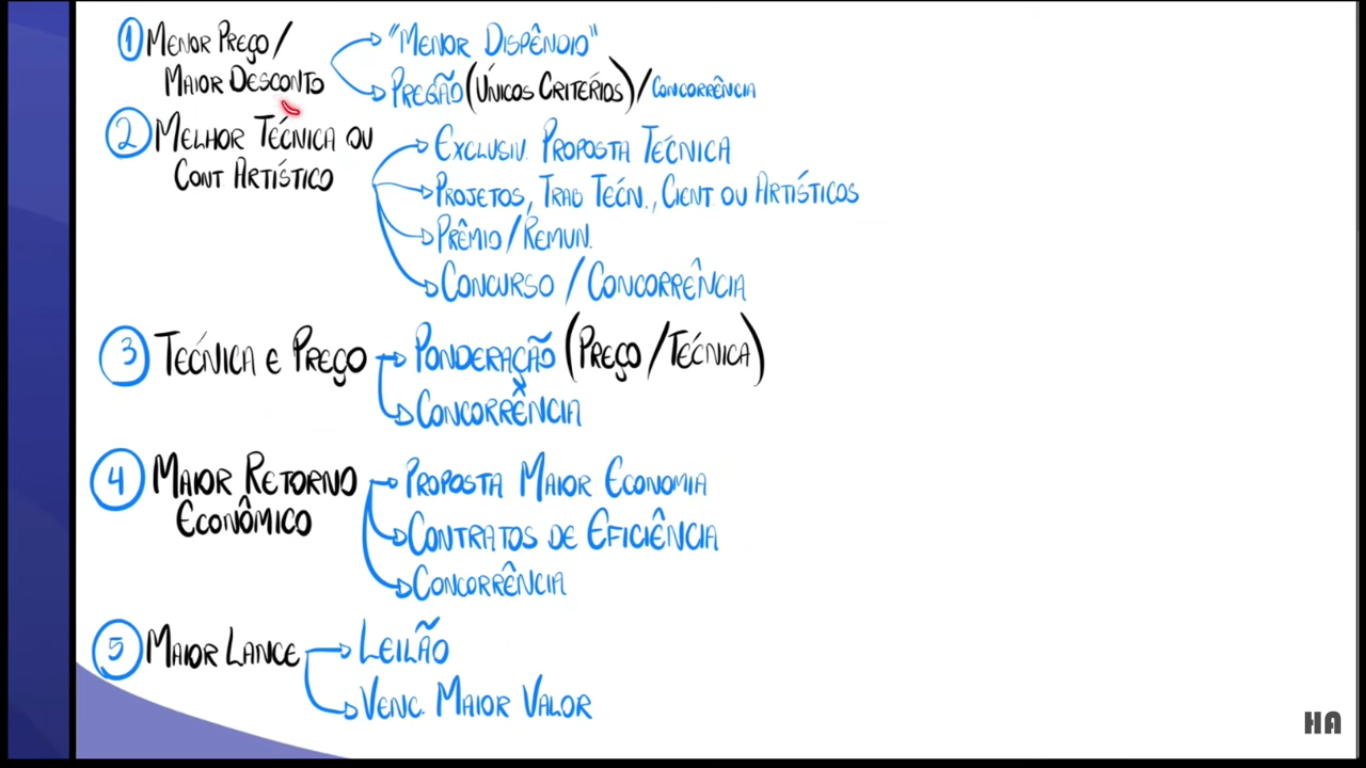 1 MENOR PREÇO/
MAIOR DESCONTO
"MENOR DISPÊNDIO"
PREGÃO (ÚNICOS CRITÉRIOS) / CONCORRÊNCIA
2 MELHOR TÉCNICA OU
CONT ARTÍSTICO
EXCLUSIV. PROPOSTA TÉCNICA
PROJETOS, TRAB TECN., CIENT. OU ARTÍSTICOS
PRÊMIO / REMUN.
CONCURSO / CONCORRÊNCIA
3 TÉCNICA E PREÇO
PONDERAÇÃO (PREÇO / TÉCNICA)
CONCORRÊNCIA
4 MAIOR RETORNO
ECONÔMICO
PROPOSTA MAIOR ECONOMIA
CONTRATOS DE EFICIÊNCIA
CONCORRÊNCIA
5 MAIOR LANCE
LEILÃO
VENC. MAIOR VALOR
HA